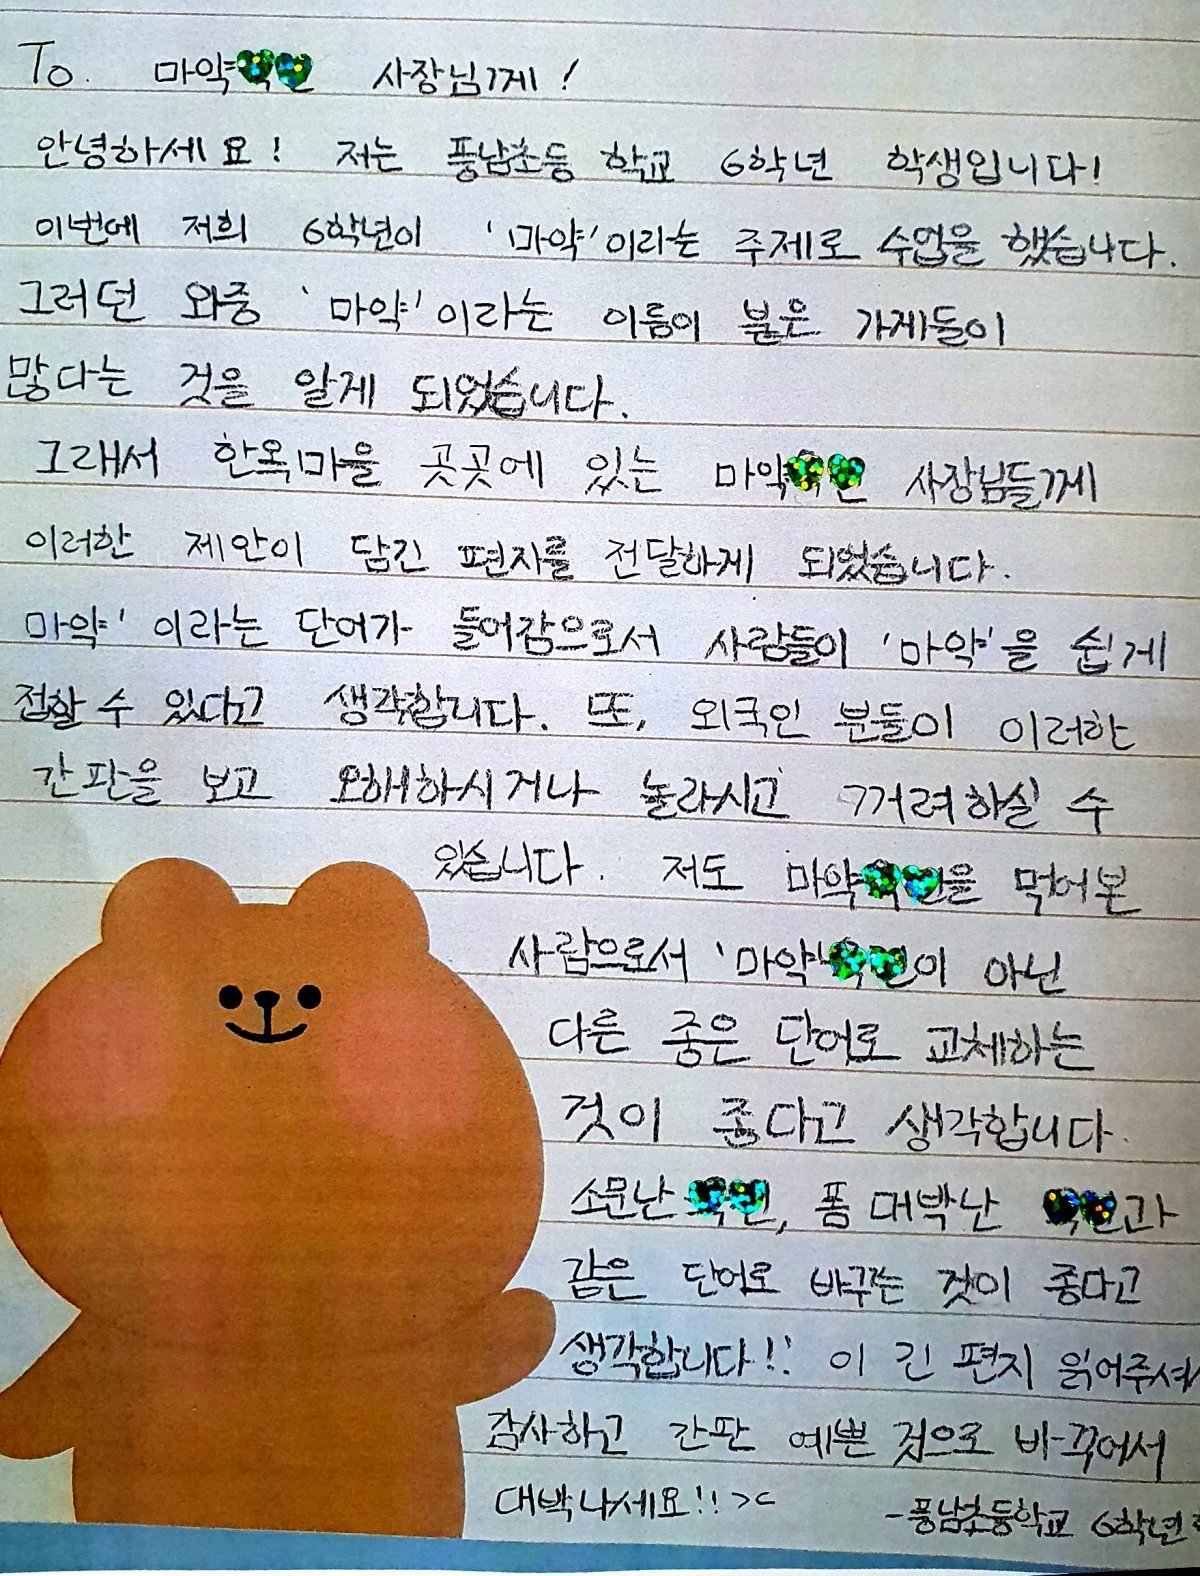 To. 마약 사장님께!
안녕하세요! 저는 풍남초등 학교 6학년 학생입니다!
이번에 저희 6학년이 '마약'이라는 주제로 수업을 했습니다.
그러던 와중 '마약'이라는 이름이 붙은 가게들이
많다는 것을 알게 되었습니다.
그래서 한옥마을 곳곳에 있는 마약 사장님들께
이러한 제안이 담긴 편지를 전달하게 되었습니다.
마약' 이라는 단어가 들어감으로서 사람들이 '마약'을 쉽게
접할 수 있다고 생각합니다. 또, 외국인 분들이 이러한
간판을 보고 오해하시거나 놀라시고 꺼려하실 수
있습니다. 저도 마약을 먹어본
사람으로서 '마약이 아닌
다른 좋은 단어로 교체하는
것이 좋다고 생각합니다.
소문난 , 폼 대박난 과
같은 단어로 바꾸는 것이 좋다고
생각합니다!! 이 긴 편지 읽어주셔
감사하고 간판 예쁜 것으로 바꾸어서
대박나세요!! ><
-풍남초등학교 6학년